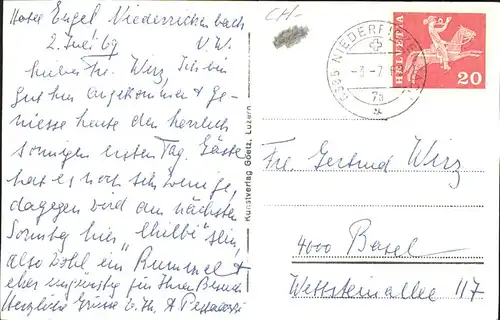 Hotel Engel Niederrickenbach
2. Juli 69 N.W.
Liebes Frl. Wirz, Ich bin
gut hier angekommen & ge-
niesse heute den herrlich
sonnigen ersten Tag. Gäste
hat es noch sehr wenige,
dagegen wird am nächsten
Sonntag hier „Chilbi" sein,
also wohl ein Rummel &
eher ungünstig für Ihren Besuch
Herzliche Grüsse v. Ihr.
Kunstverlag Goetz, Luzern
CH-
HELVETIA
20
-3.-7.
7a
Frl. Gertrud Wirz
4000 Basel
Wettsteinallee 117